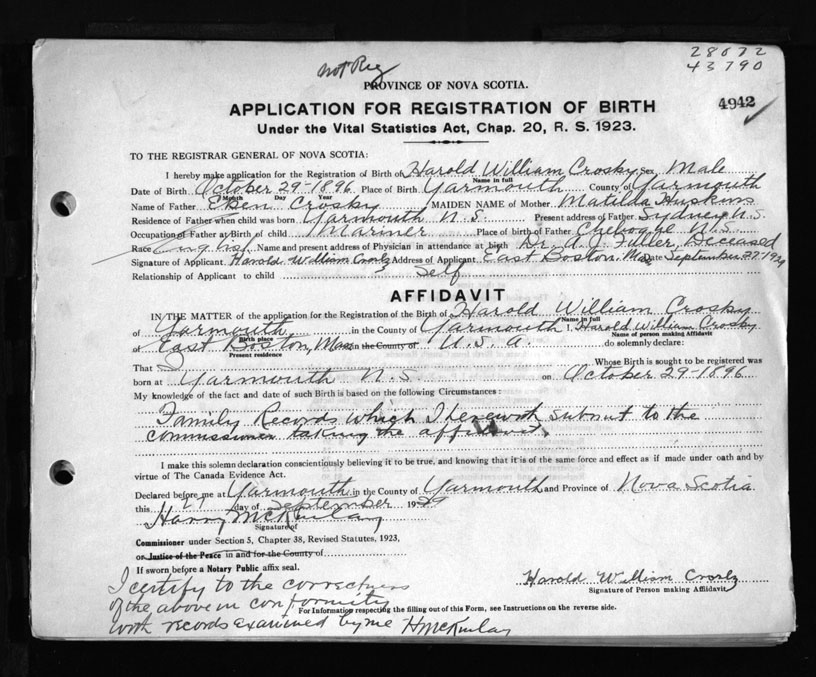 28672
43790
not Reg
PROVINCE OF NOVA SCOTIA.
APPLICATION FOR REGISTRATION OF BIRTH
4942
Under the Vital Statistics Act, Chap. 20, R. S. 1923.
TO THE REGISTRAR GENERAL OF NOVA SCOTIA:
I hereby make application for the Registration of Birth of Harold William Crosby Sex Male
Name in full
Date of Birth October 29-1896 Place of Birth Yarmouth County of Yarmouth
Month Day Year
Name of Father Eben Crosby MAIDEN NAME of Mother Matilda Huskins
Residence of Father when child was born Yarmouth N.S. Present address of Father Sydney N.S.
Occupation of Father at Birth of child Mariner Place of birth of Father Chebogue N.S.
Race English Name and present address of Physician in attendance at birth Dr. A. J. Fuller, Deceased
Signature of Applicant Harold William Crosby Address of Applicant East Boston, Mass Date September 27 1929
Relationship of Applicant to child Self
AFFIDAVIT
IN THE MATTER of the application for the Registration of the Birth of Harold William Crosby
Name in full
of Yarmouth in the County of Yarmouth I, Harold William Crosby
Birth place Name of person making Affidavit
of East Boston, Mass in the County of U.S.A. do solemnly declare:
Present residence
That I Whose Birth is sought to be registered was
born at Yarmouth N.S. on October 29-1896
My knowledge of the fact and date of such Birth is based on the following Circumstances:
Family Records which I herewith submit to the
commissioner taking the affidavit.
I make this solemn declaration conscientiously believing it to be true, and knowing that it is of the same force and effect as if made under oath and by
virtue of The Canada Evidence Act.
Declared before me at Yarmouth in the County of Yarmouth and Province of Nova Scotia
this 27 day of September 1929
Harry McKinlay
Signature of
Commissioner under Section 5, Chapter 38, Revised Statutes, 1923,
or Justice of the Peace in and for the County of
If sworn before a Notary Public affix seal.
Harold William Crosby
Signature of Person making Affidavit
I certify to the correctness
of the above in conformity
For Information respecting the filling out of this Form, see Instructions on the reverse side.
with records examined by me H McKinlay